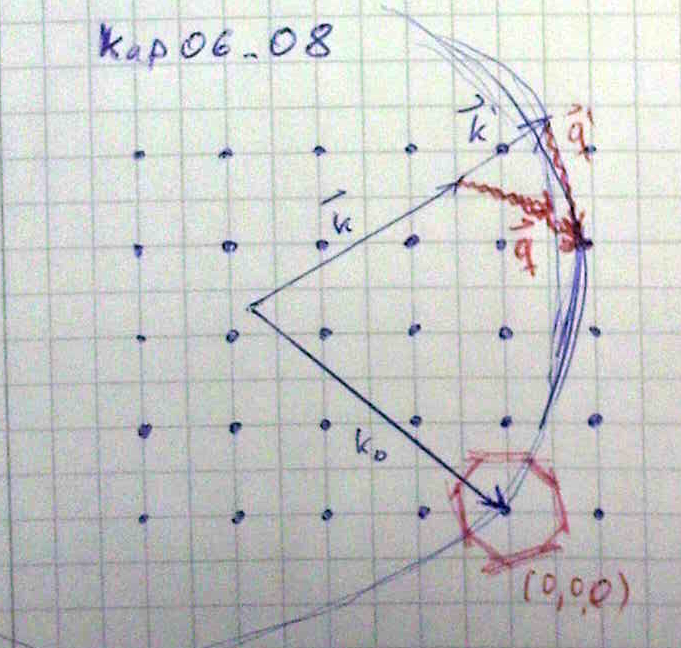 Kap06_08
k'
q'
k
q
k₀
(0,0,0)